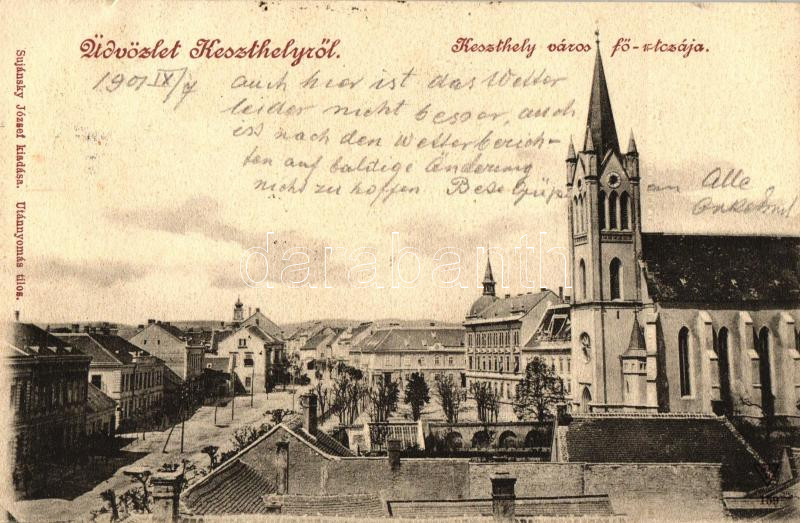 Üdvözlet Keszthelyről.
Keszthely város fő-utczája.
1901 IX/7
auch hier ist das Wetter
leider nicht besser, auch
ist nach den Wetterberich-
ten auf baldige Änderung
nicht zu hoffen
an Alle
Onkel
darabanth
Sujánsky József kiadása. Utánnyomás tilos.